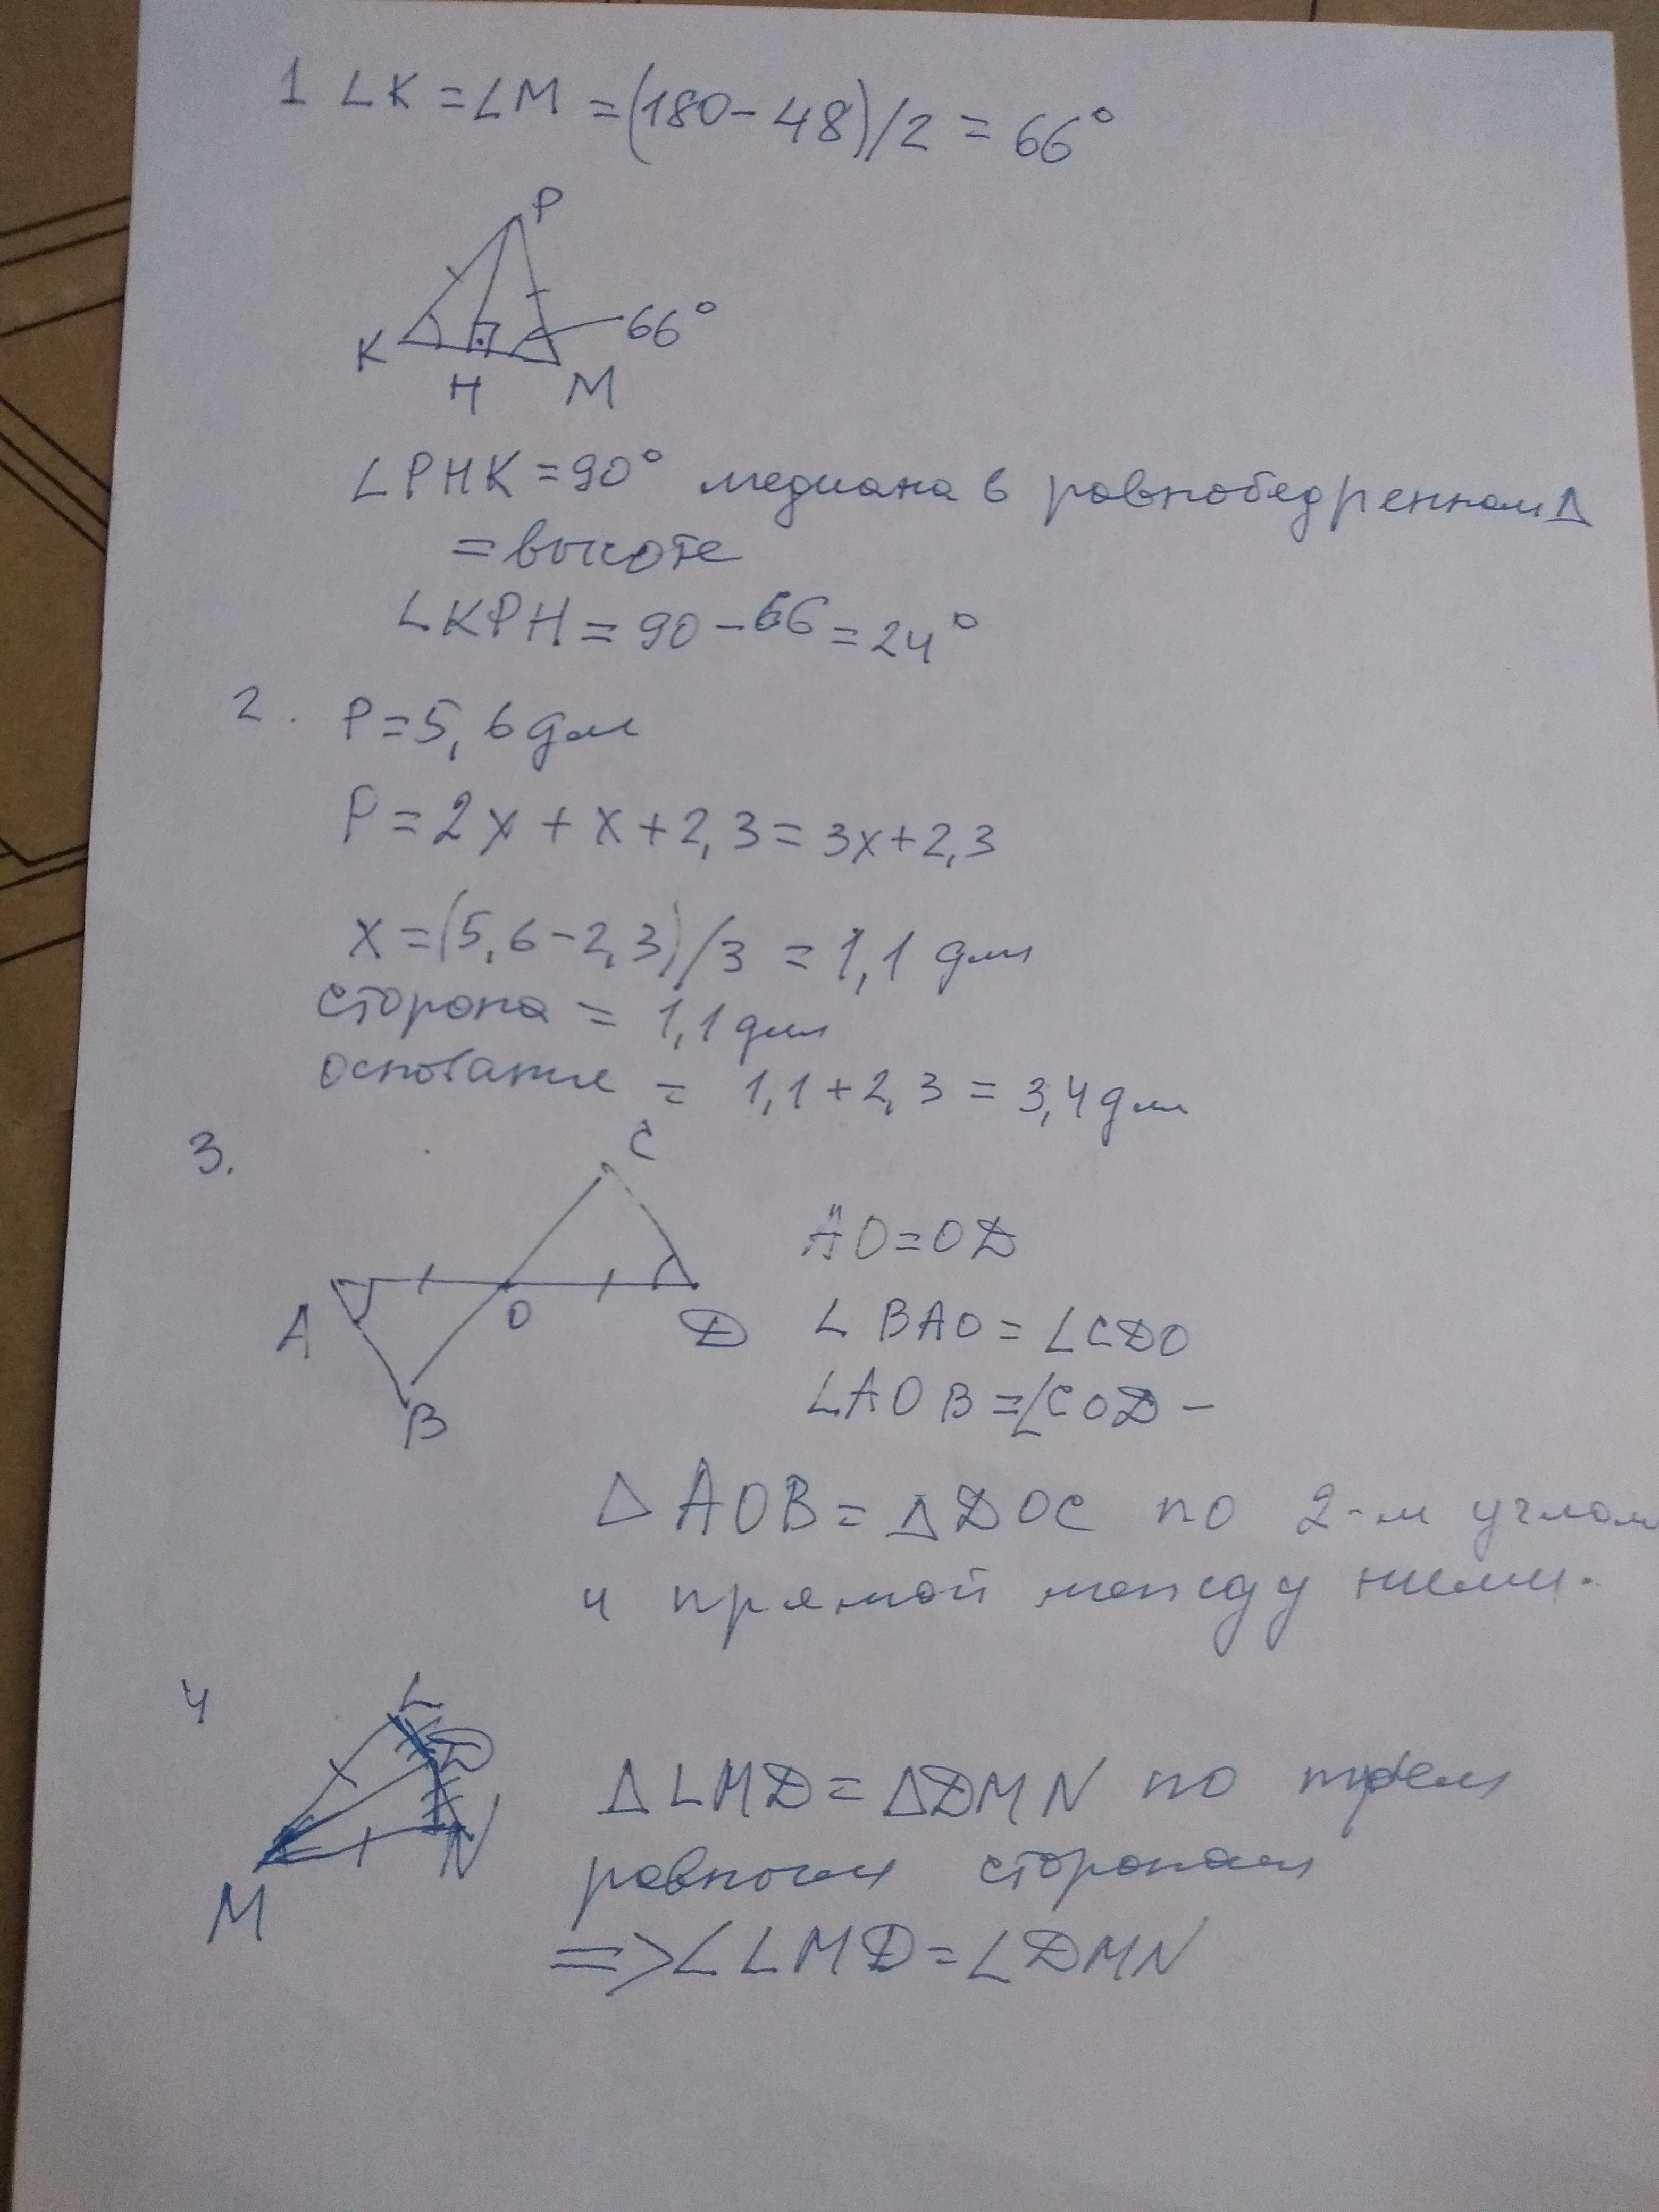 1 ∠K = ∠M = (180 - 48)/2 = 66°
P
66°
K
H M
∠PHK = 90° медиана в равнобедренном Δ
= высоте
∠KPH = 90 - 66 = 24°
2. P = 5,6 дм
P = 2x + x + 2,3 = 3x + 2,3
x = (5,6 - 2,3)/3 = 1,1 дм
сторона = 1,1 дм
основание = 1,1 + 2,3 = 3,4 дм
3.
C
A O D
B
AO = OD
∠BAO = ∠CDO
∠AOB = ∠COD -
Δ AOB = Δ DOC по 2-м углам
и прямой между ними.
4
L
D
N
M
Δ LMD = Δ DMN по трем
равным сторонам
=> ∠LMD = ∠DMN